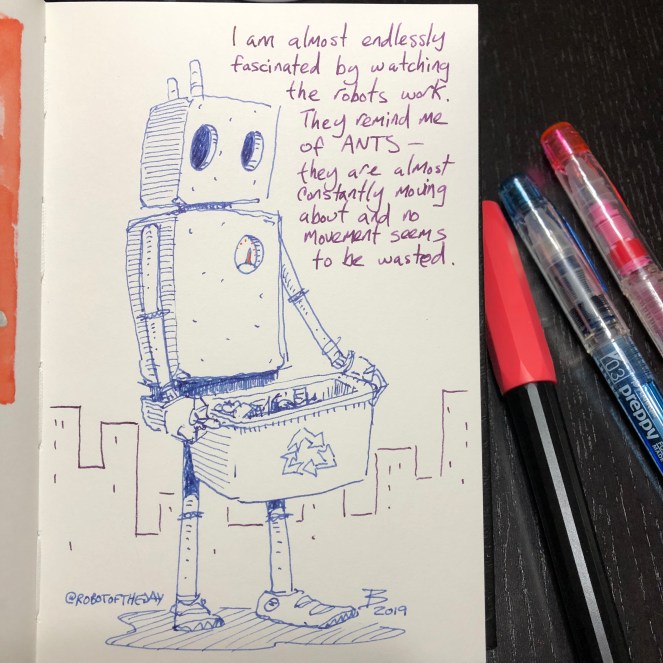 I am almost endlessly
fascinated by watching
the robots work.
They remind me
of ANTS —
they are almost
constantly moving
about and no
movement seems
to be wasted.
@ROBOTOFTHEDAY
2019
03 preppy